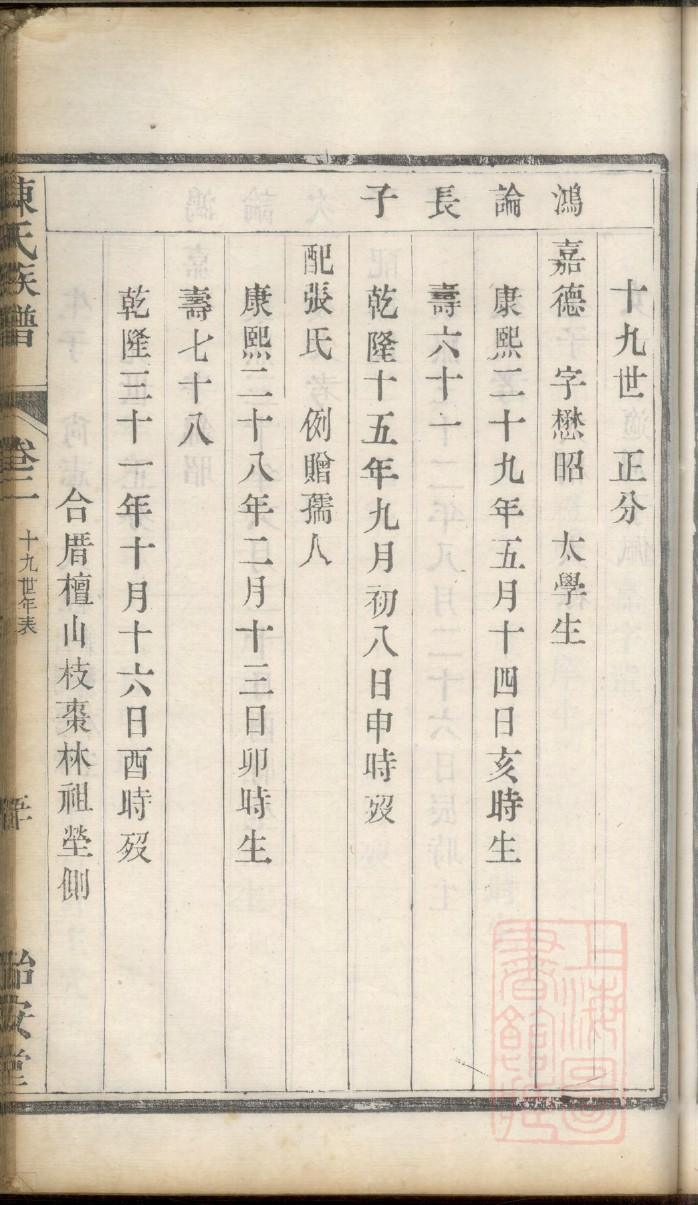 十九世 正分
鴻論長子
嘉德 字懋昭 太學生
康熙二十九年五月十四日亥時生
壽六十一
乾隆十五年九月初八日申時歿
配張氏 例贈孺人
康熙二十八年二月十三日卯時生
壽七十八
乾隆三十一年十月十六日酉時歿
合厝檀山枝棗林祖塋側
陳氏族譜
卷二
十九世年表
怡安堂
上海圖
書館藏